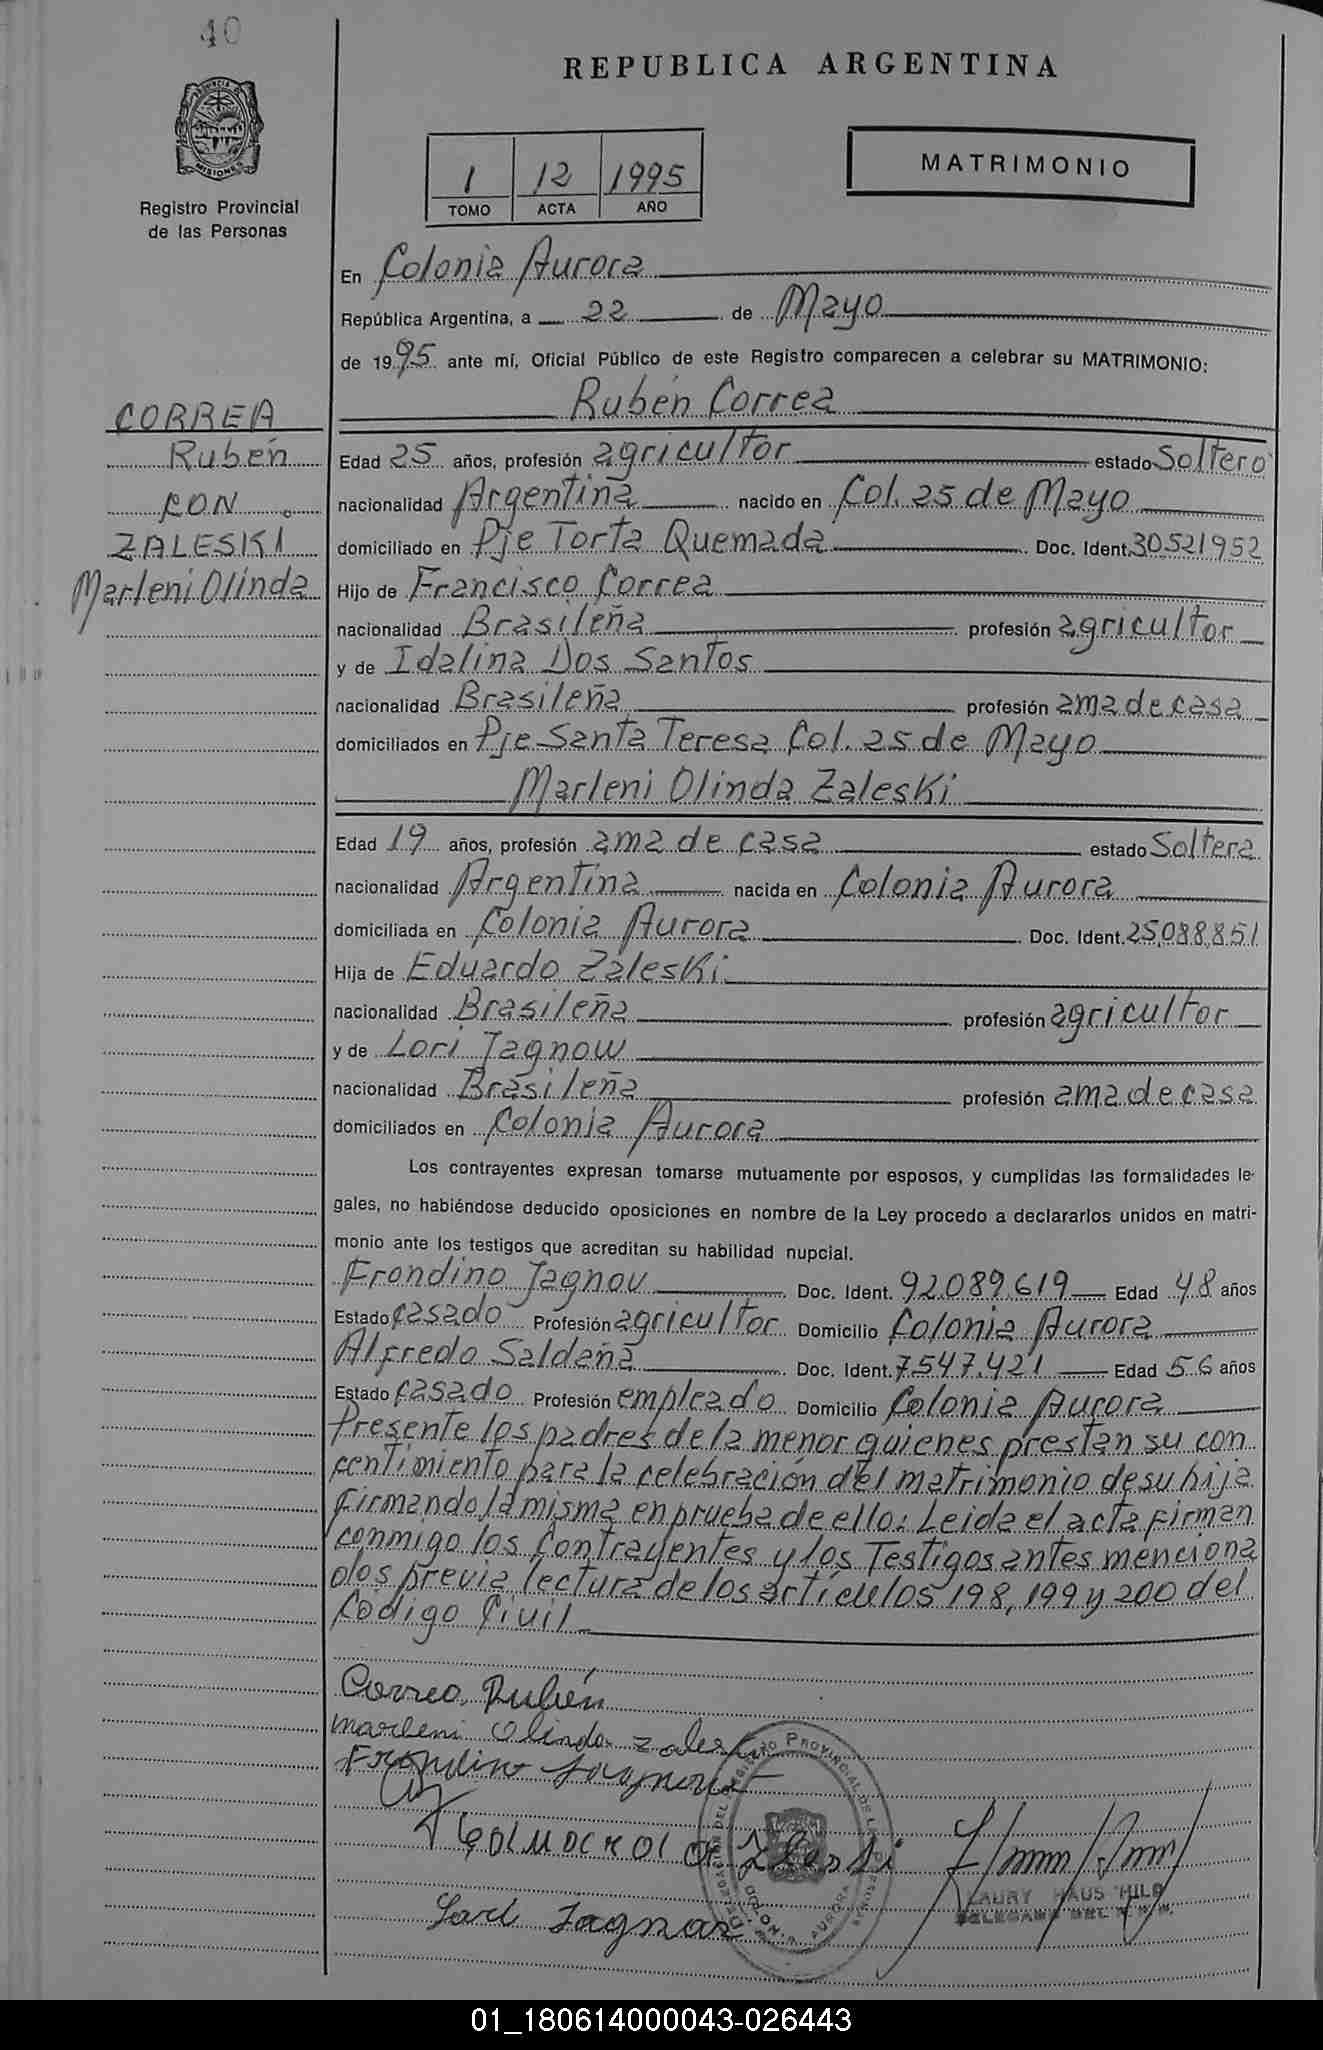 40
REPUBLICA ARGENTINA
PROVINCIA DE MISIONES
Registro Provincial
de las Personas
1 12 1995
TOMO ACTA AÑO
MATRIMONIO
En Colonia Aurora
República Argentina, a 22 de Mayo
de 1995 ante mí, Oficial Público de este Registro comparecen a celebrar su MATRIMONIO:
Rubén Correa
CORREA
Rubén
CON
ZALESKI
Marleni Olinda
Edad 25 años, profesión agricultor estado Soltero
nacionalidad Argentina nacido en Col. 25 de Mayo
domiciliado en Pje Torta Quemada Doc. Ident. 30.521952
Hijo de Francisco Correa
nacionalidad Brasileña profesión agricultor
y de Idalina Dos Santos
nacionalidad Brasileña profesión ama de casa
domiciliados en Pje Santa Teresa Col. 25 de Mayo
Marleni Olinda Zaleski
Edad 19 años, profesión ama de casa estado Soltera
nacionalidad Argentina nacida en Colonia Aurora
domiciliada en Colonia Aurora Doc. Ident. 25.088.851
Hija de Eduardo Zaleski
nacionalidad Brasileña profesión agricultor
y de Lori Jagnow
nacionalidad Brasileña profesión ama de casa
domiciliados en Colonia Aurora
Los contrayentes expresan tomarse mutuamente por esposos, y cumplidas las formalidades le-
gales, no habiéndose deducido oposiciones en nombre de la Ley procedo a declararlos unidos en matri-
monio ante los testigos que acreditan su habilidad nupcial.
Frondino Jagnov Doc. Ident. 92.089.619 Edad 48 años
Estado casado Profesión agricultor Domicilio Colonia Aurora
Alfredo Saldaña Doc. Ident. 7.547.421 Edad 56 años
Estado casado Profesión empleado Domicilio Colonia Aurora
Presente los padres de la menor quienes prestan su con
centimiento para la celebración del matrimonio de su hija
firmando la misma en prueba de ello: Leida el acta firman
conmigo los Contrayentes y los Testigos antes menciona
dos previa lectura de los artículos 198, 199 y 200 del
Código Civil
Correa, Rubén
Marleni Olinda Zaleski
Frondino
DELEGADO DEL R.P.P.
01_180614000043-026443